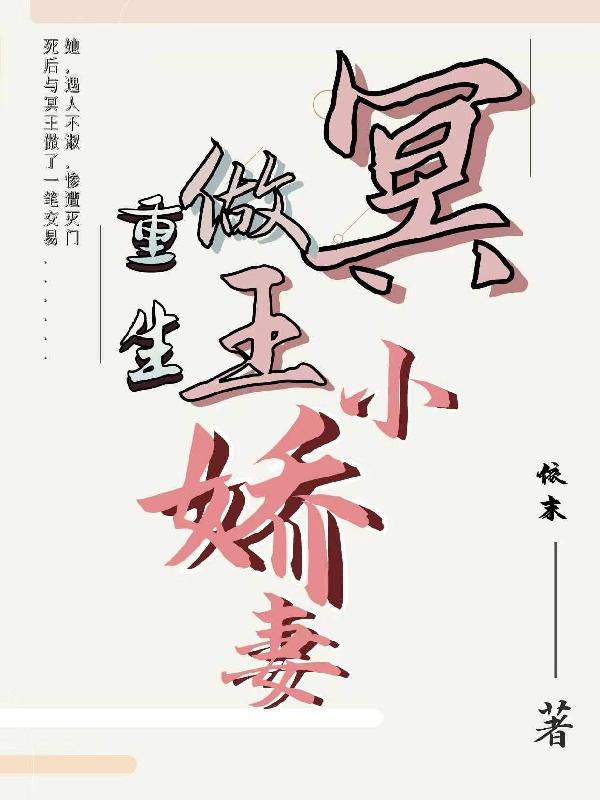 重生
做冥王
小娇妻
她,遇人不淑,惨遭灭门
死后与冥王做了一笔交易......
依末
著